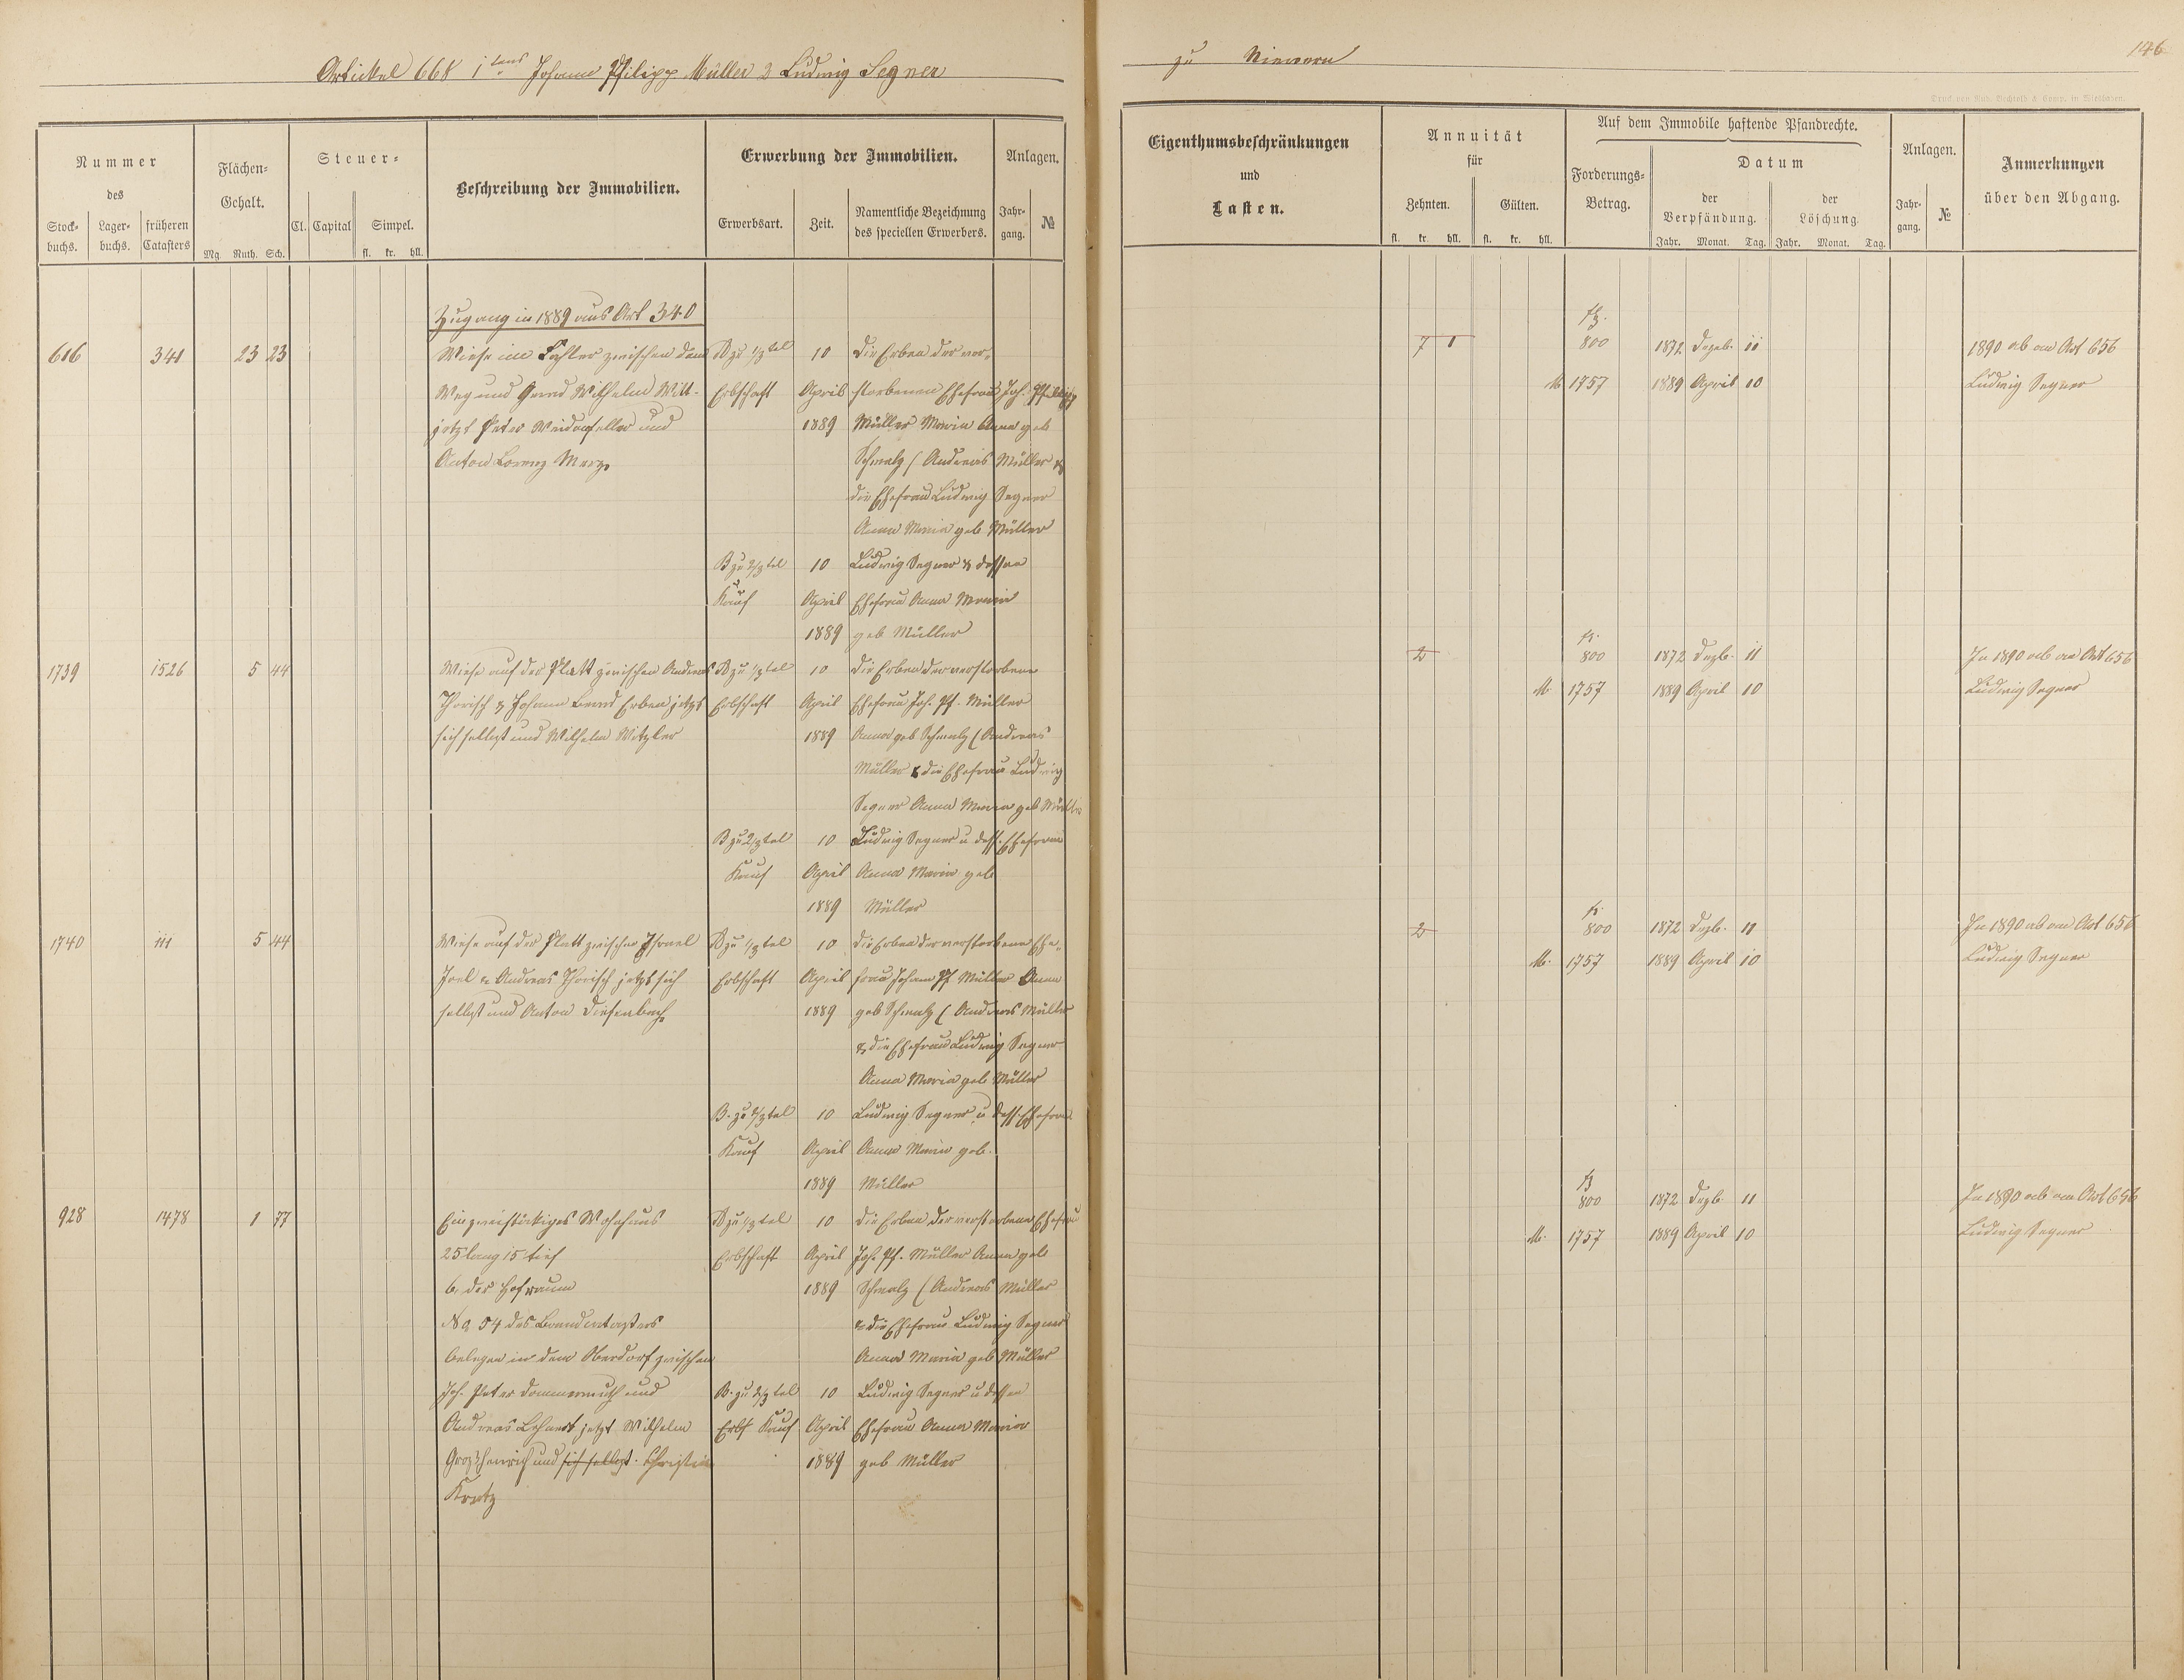 Artickel 668 1tens Johann Philipp Müller 2 Ludwig Segner
zu Nievern
146
Druck von Rud. Bechtold & Comp. in Wiesbaden.
Nummer
des
Stock-buchs.
Lager-buchs.
früheren Catasters
Flächen-Gehalt.
Mg. Ruth. Sch.
Steuer-
Cl. Capital Simpel.
fl. kr. hll.
Beschreibung der Immobilien.
Erwerbung der Immobilien.
Erwerbsart. Zeit.
Namentliche Bezeichnung
des speciellen Erwerbers.
Anlagen.
Jahr-gang. №
Eigenthumsbeschränkungen
und
Lasten.
Annuität
für
Zehnten. Gülten.
fl. kr. hll. fl. kr. hll.
Auf dem Immobile haftende Pfandrechte.
Forderungs-
Betrag.
Datum
der Verpfändung.
der Löschung.
Jahr. Monat. Tag. Jahr. Monat. Tag.
Anlagen.
Jahr-gang. №
Anmerkungen
über den Abgang.
Zugang in 1889 aus Art 340
616 341 23 23
Wiese im zwischen dem
Weg und Wilhelm Witt-
jetzt Peter Weidenfeller und
Anton Lorenz Merz
A zu 1/3 tel
Erbschaft
10
April
1889
die Erben der ver-
storbenen Ehefrau Joh. Philipp
Müller Maria Anna geb
Schmalz (Andreas Müller &
die Ehefrau Ludwig Segner
Anna Maria geb Müller
B zu 2/3 tel
Kauf
10
April
1889
Ludwig Segner & dessen
Ehefrau Anna Maria
geb Müller
7 1
fl.
800 1872 Dezb. 11
M 1757 1889 April 10
1890 ab an Art 656
Ludwig Segner
1739 1526 5 44
Wiese auf der Platt zwischen Andreas
Thorisch & Johann Erben jetzt
sich selbst und Wilhelm Witzler
A zu 1/3 tel
Erbschaft
10
April
1889
die Erben der verstorbene
Ehefrau Joh. Pf. Müller
Anna geb Schmalz (Andreas
Müller & die Ehefrau Ludwig
Segner Anna Maria geb Müller
B zu 2/3 tel
Kauf
10
April
1889
Ludwig Segner u dess. Ehefrau
Anna Maria geb
Müller
2
fl.
800 1872 Dezb. 11
M. 1757 1889 April 10
In 1890 ab an Art 656
Ludwig Segner
1740 111 5 44
Wiese auf der Platt zwischen Israel
Joel & Andreas Thorisch jetzt sich
selbst und Anton Diefenbach
A zu 1/3 tel
Erbschaft
10
April
1889
die Erben der verstorbene Ehe-
frau Johann Pf Müller Anna
geb Schmalz (Andreas Müller
& die Ehefrau Ludwig Segner
Anna Maria geb Müller
B. zu 2/3 tel
Kauf
10
April
1889
Ludwig Segner u dess. Ehefrau
Anna Maria geb.
Müller
2
fl.
800 1872 Dezb. 11
M. 1757 1889 April 10
In 1890 ab an Art 656
Ludwig Segner
928 1478 1 77
Ein zweistöckiges Wohnhaus
25 lang 15 tief
b. der Hofraum
No 54 des Brandcatasters
belegen in dem Oberdorf zwischen
Joh. Peter Dommermuth und
Andreas Lehnert jetzt Wilhelm
Großheinrich und sich selbst. Christian
Kratz
A zu 1/3 tel
Erbschaft
10
April
1889
die Erben der verstorbene Ehefrau
Joh. Pf. Müller Anna geb
Schmalz (Andreas Müller
& die Ehefrau Ludwig Segner
Anna Maria geb Müller
B. zu 2/3 tel
Erbf Kauf
10
April
1889
Ludwig Segner u dessen
Ehefrau Anna Maria
geb Müller
fl
800 1872 Dezb. 11
M. 1757 1889 April 10
In 1890 ab an Art 656
Ludwig Segner